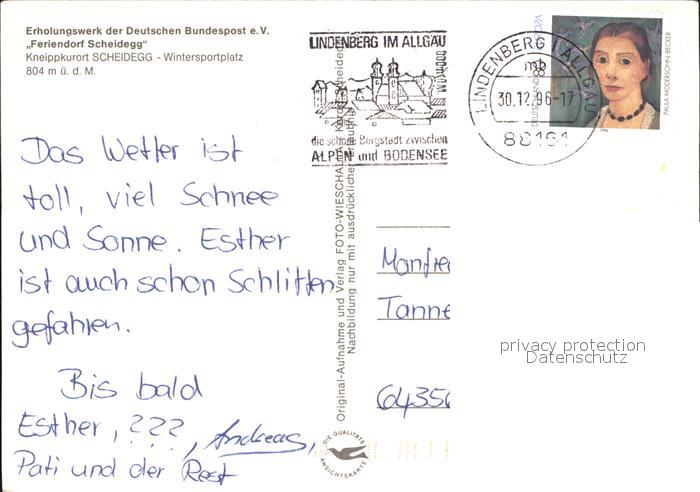 Erholungswerk der Deutschen Bundespost e.V.
„Feriendorf Scheidegg"
Kneippkurort SCHEIDEGG - Wintersportplatz
804 m ü. d. M.
LINDENBERG IM ALLGÄU
die schöne Bergstadt zwischen
ALPEN und BODENSEE
LINDENBERG I ALLGÄU
mb
30.12.96-17
88161
DEUTSCHLAND
PAULA MODERSOHN-BECKER
Das Wetter ist
toll, viel Schnee
und Sonne. Esther
ist auch schon Schlitten
gefahren.
Bis bald
Esther, ???, Andreas,
Pati und der Rest
Original-Aufnahme und Verlag FOTO-WIESCHALLA
Nachbildung nur mit ausdrücklicher
DIE QUALITÄTS
ANSICHTSKARTE
Manfre
Tanne
6435
privacy protection
Datenschutz